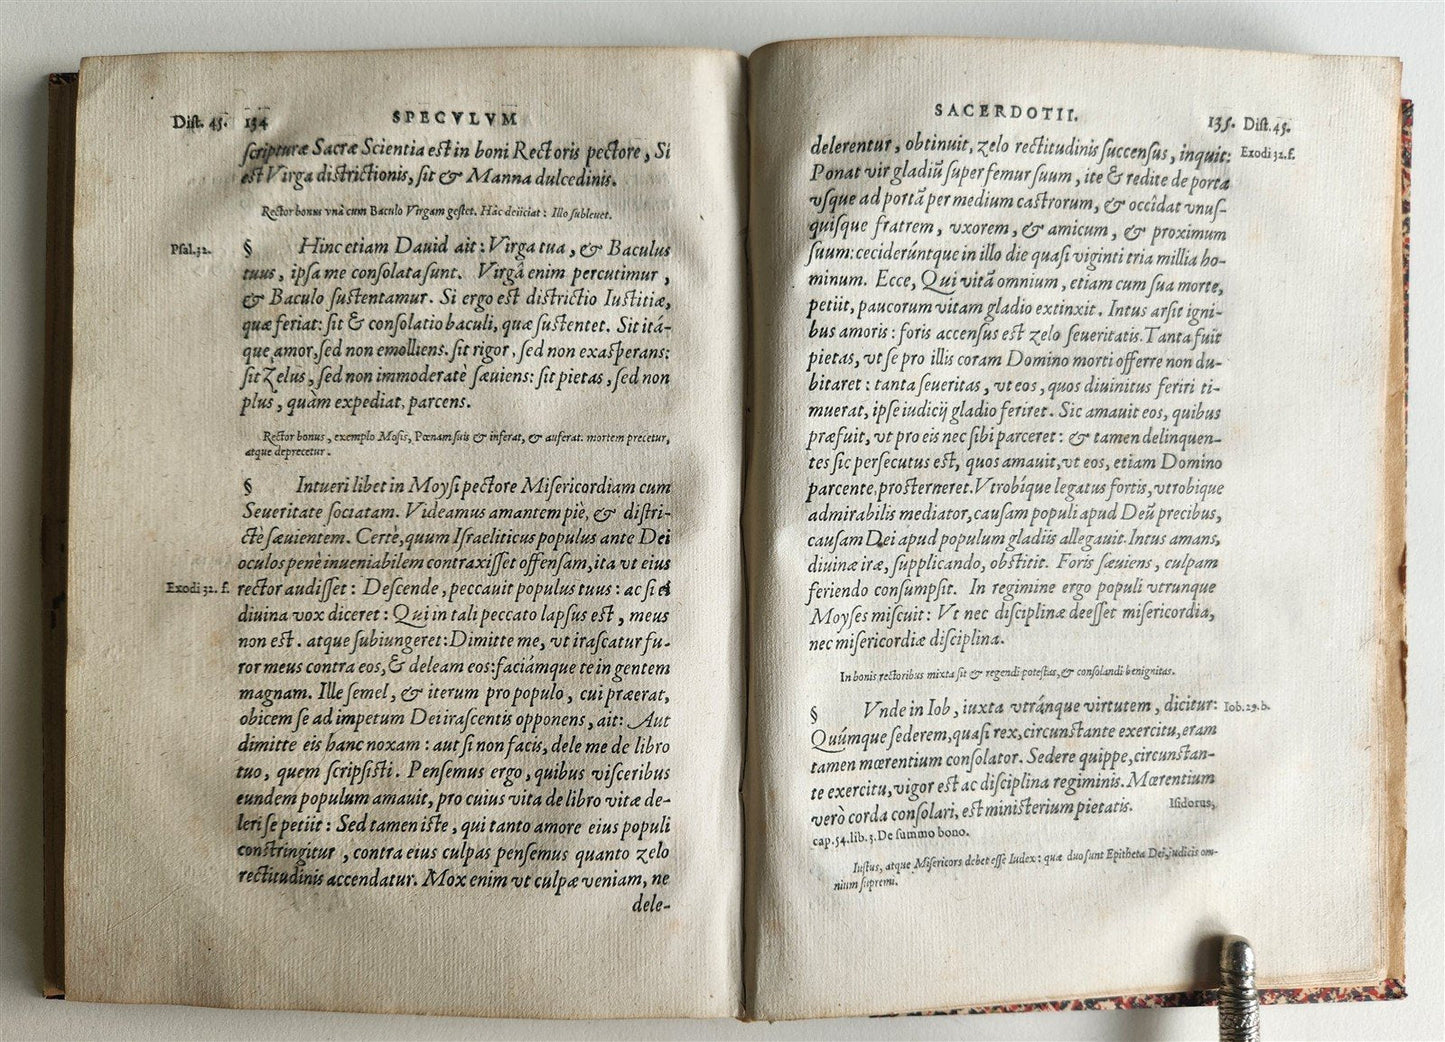 Dist. 45. 134 SPECVLVM
scripturæ Sacræ Scientia est in boni Rectoris pectore, Si
est Virga districtionis, sit & Manna dulcedinis.
Rector bonus vnà cum Baculo Virgam gestet. Hâc deiiciat: Illo subleuet.
Psal. 22. § Hinc etiam Dauid ait: Virga tua, & Baculus
tuus, ipsa me consolata sunt. Virgâ enim percutimur,
& Baculo sustentamur. Si ergo est districtio Iustitiæ,
quæ feriat: sit & consolatio baculi, quæ sustentet. Sit itá-
que amor, sed non emolliens. sit rigor, sed non exasperans:
sit Zelus, sed non immoderatè sæuiens: sit pietas, sed non
plus, quàm expediat, parcens.
Rector bonus, exemplo Mosis, Pœnam suis & inferat, & auferat. mortem precetur,
atque deprecetur.
§ Intueri libet in Moysi pectore Misericordiam cum
Seueritate sociatam. Videamus amantem piè, & distri-
ctè sæuientem. Certè, quum Israeliticus populus ante Dei
oculos penè inueniabilem contraxisset offensam, ita vt eius
Exodi 32. f. rector audisset: Descende, peccauit populus tuus: ac si ei
diuina vox diceret: Qui in tali peccato lapsus est, meus
non est. atque subiungeret: Dimitte me, vt irascatur fu-
ror meus contra eos, & deleam eos: faciámque te in gentem
magnam. Ille semel, & iterum pro populo, cui præerat,
obicem se ad impetum Dei irascentis opponens, ait: Aut
dimitte eis hanc noxam: aut si non facis, dele me de libro
tuo, quem scripsisti. Pensemus ergo, quibus visceribus
eundem populum amauit, pro cuius vita de libro vitæ de-
leri se petiit: Sed tamen iste, qui tanto amore eius populi
constringitur, contra eius culpas pensemus quanto zelo
rectitudinis accendatur. Mox enim vt culpæ veniam, ne
dele-
SACERDOTII. 135. Dist. 45.
delerentur, obtinuit, zelo rectitudinis succensus, inquit: Exodi 32. f.
Ponat vir gladiũ super femur suum, ite & redite de porta
vsque ad portã per medium castrorum, & occîdat vnus-
quisque fratrem, vxorem, & amicum, & proximum
suum: ceciderúntque in illo die quasi viginti tria millia ho-
minum. Ecce, Qui vitã omnium, etiam cum sua morte,
petiit, paucorum vitam gladio extinxit. Intus arsit igni-
bus amoris: foris accensus est zelo seueritatis. Tanta fuit
pietas, vt se pro illis coram Domino morti offerre non du-
bitaret: tanta seueritas, vt eos, quos diuinitus feriri ti-
muerat, ipse iudicij gladio feriret. Sic amauit eos, quibus
præfuit, vt pro eis nec sibi parceret: & tamen delinquen-
tes sic persecutus est, quos amauit, vt eos, etiam Domino
parcente, prosterneret. Vtrobíque legatus fortis, vtrobique
admirabilis mediator, causam populi apud Deũ precibus,
causam Dei apud populum gladiis allegauit. Intus amans,
diuinæ iræ, supplicando, obstitit. Foris sæuiens, culpam
feriendo consumpsit. In regimine ergo populi vtrunque
Moyses miscuit: Vt nec disciplinæ deesset misericordia,
nec misericordiæ disciplina.
In bonis rectoribus mixta sit & regendi potestas, & consolandi benignitas.
§ Vnde in Iob, iuxta vtránque virtutem, dicitur: Iob. 29. b.
Quúmque sederem, quasi rex, circunstante exercitu, eram
tamen mœrentium consolator. Sedere quippe, circunstan-
te exercitu, vigor est ac disciplina regiminis. Mœrentium
verò corda consolari, est ministerium pietatis. Isidorus,
cap. 54. lib. 3. De summo bono.
Iustus, atque Misericors debet esse Iudex: quæ duo sunt Epitheta Dei, iudicis om-
nium supremi.